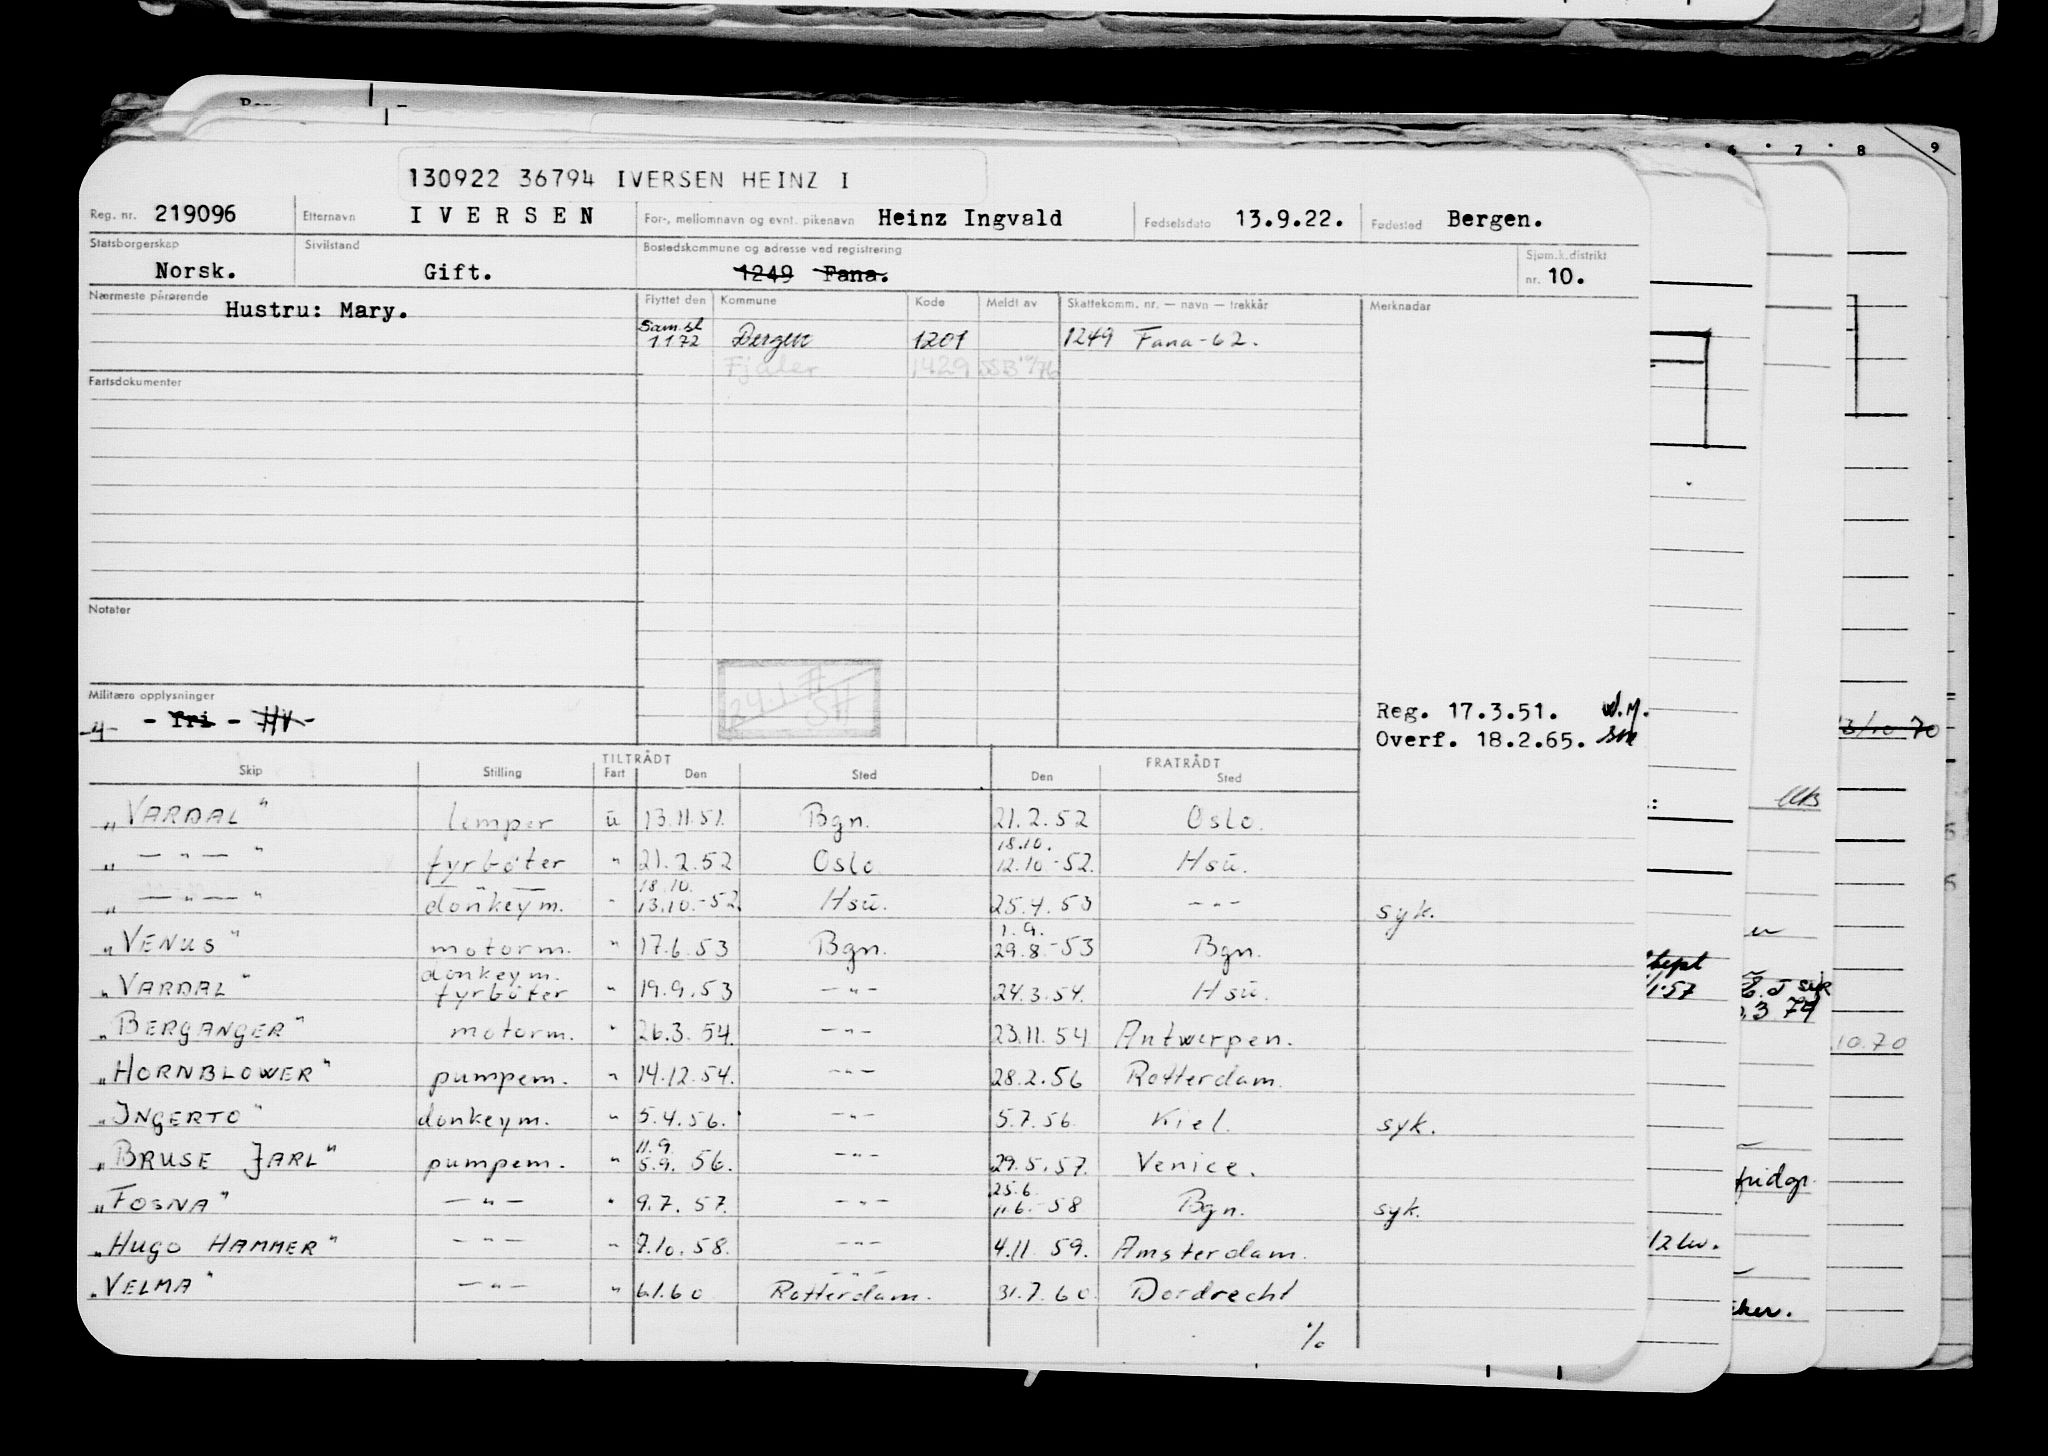 130922 36794 IVERSEN HEINZ I
Reg. nr. 219096 Etternavn IVERSEN For-, mellomnavn og evnt. pikenavn Heinz Ingvald Fødselsdato 13.9.22. Fødested Bergen.
Statsborgerskap Sivilstand Bostedskommune og adresse ved registrering Sjøm.k.distrikt
Norsk. Gift. 1249 Fana. nr. 10.
Nærmeste pårørende Hustru: Mary. Flyttet den Kommune Kode Meldt av Skattekomm. nr. — navn — trekkår Merknader
Sam.sl
1.1.72 Bergen 1201 1249 Fana-62.
Fjaler 1429
Fartsdokumenter
Notater
Militære opplysninger
-4- - fri - HV-
Reg. 17.3.51. W.M.
Overf. 18.2.65.
TILTRÅDT FRATRÅDT
Skip Stilling Fart Den Sted Den Sted
„VARDAL" lemper u 13.11.51. Bgn. 21.2.52 Oslo.
18.10.
„—"—" fyrbøter " 21.2.52 Oslo 12.10.-52. Hsu.
18.10.
„—"—" donkeym. " 13.10.-52. Hsu. 25.4.53 —"— syk.
1.9.
„VENUS" motorm. " 17.6.53 Bgn. 29.8.-53 Bgn.
donkeym.
„VARDAL" fyrbøter " 19.9.53 —"— 24.3.54. Hsu.
„BERGANGER" motorm. " 26.3.54. —"— 23.11.54 Antwerpen.
„HORNBLOWER" pumpem. " 14.12.54. —"— 28.2.56 Rotterdam.
„INGERTO" donkeym. " 5.4.56. —"— 5.7.56. Kiel. syk.
11.9.
„BRUSE JARL" pumpem. " 5.9.56. —"— 29.5.57. Venice.
25.6.
„FOSNA" —"— " 9.7.57. —"— 11.6.-58 Bgn. syk.
„HUGO HAMMER" —"— " 7.10.58. —"— 4.11.59. Amsterdam.
„VELMA" —"— " 6.1.60 Rotterdam. 31.7.60. Dordrecht
%
6 7 8 9
10.70